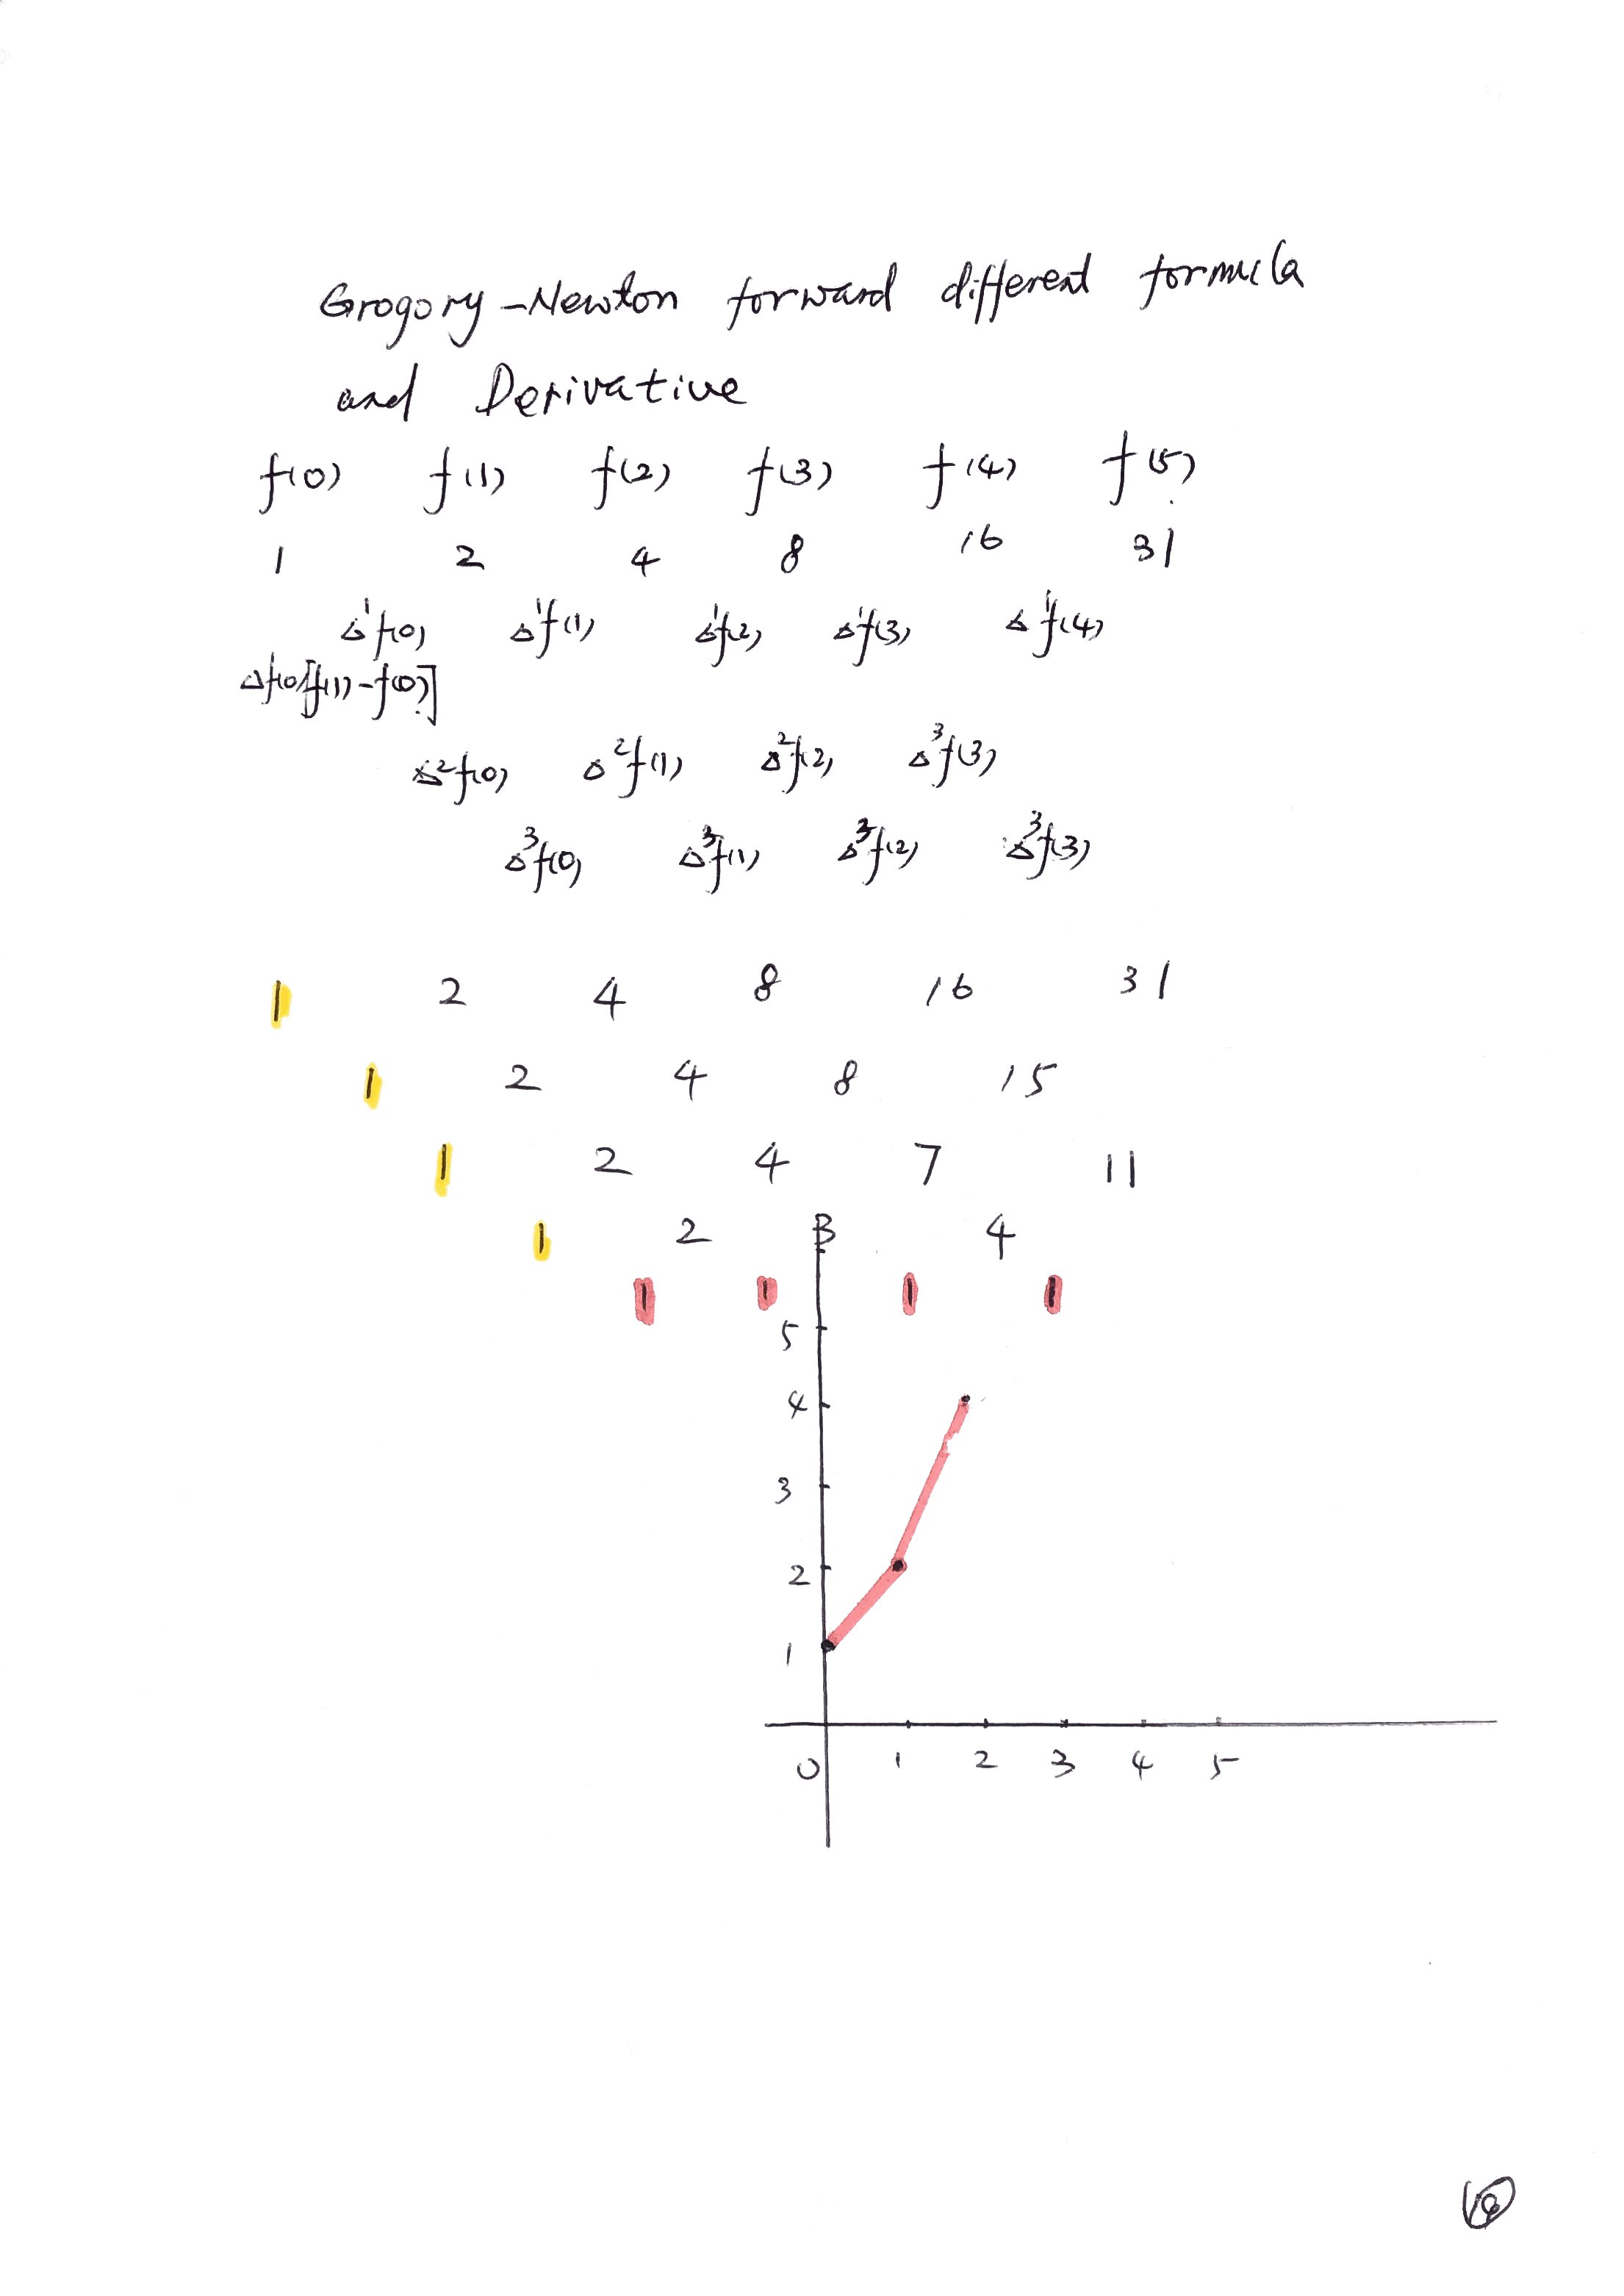 Grogory-Newton forward different formula
and Derivative
f(0) f(1) f(2) f(3) f(4) f(5)
1 2 4 8 16 31
Δ¹f(0) Δ¹f(1) Δ¹f(2) Δ¹f(3) Δ¹f(4)
Δ¹f(0)[f(1)-f(0)]
Δ²f(0) Δ²f(1) Δ²f(2) Δ³f(3)
Δ³f(0) Δ³f(1) Δ³f(2) Δ³f(3)
1 2 4 8 16 31
1 2 4 8 15
1 2 4 7 11
1 2 3 4
1 1 1 1
5
4
3
2
1
0 1 2 3 4 5